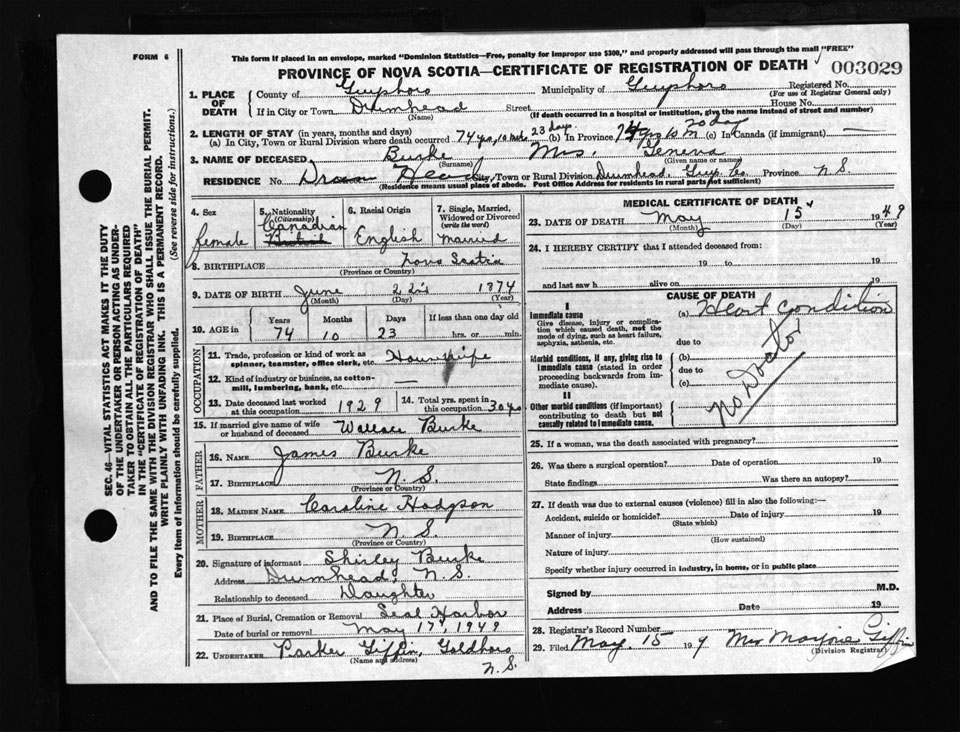 FORM 6
This form if placed in an envelope, marked "Dominion Statistics—Free, penalty for improper use $300," and properly addressed will pass through the mail "FREE"
PROVINCE OF NOVA SCOTIA—CERTIFICATE OF REGISTRATION OF DEATH
003029
1. PLACE OF DEATH
County of Guysboro Municipality of Guysboro Registered No.
(For use of Registrar General only)
If in City or Town Drumhead Street House No.
(Name) (If death occurred in a hospital or institution, give its name instead of street and number)
2. LENGTH OF STAY (in years, months and days)
(a) In City, Town or Rural Division where death occurred 74 yrs, 10 mts 23 days (b) In Province 74 yrs 10 m (c) In Canada (if immigrant) —
3. NAME OF DECEASED Burke Mrs. Geneva
(Surname) (Given name or names)
RESIDENCE No. Head City, Town or Rural Division Drumhead, Guys. Co. Province N S
(Residence means usual place of abode. Post Office Address for residents in rural parts not sufficient)
4. Sex
female
5. Nationality
(Citizenship)
Canadian
6. Racial Origin
English
7. Single, Married, Widowed or Divorced
(write the word)
married
8. BIRTHPLACE Nova Scotia
(Province or Country)
9. DATE OF BIRTH June 22 1874
(Month) (Day) (Year)
10. AGE in
Years Months Days If less than one day old
74 10 23 hrs. or min.
OCCUPATION
11. Trade, profession or kind of work as
spinner, teamster, office clerk, etc. Housewife
12. Kind of industry or business, as cotton-
mill, lumbering, bank, etc. —
13. Date deceased last worked
at this occupation 1929
14. Total yrs. spent in
this occupation 30 yrs
15. If married give name of wife
or husband of deceased Wallace Burke
FATHER
16. NAME James Burke
17. BIRTHPLACE N. S.
(Province or Country)
MOTHER
18. MAIDEN NAME Caroline Hodgson
19. BIRTHPLACE N. S.
(Province or Country)
20. Signature of informant Shirley Burke
Address Drumhead, N. S.
Relationship to deceased Daughter
21. Place of Burial, Cremation or Removal Seal Harbor
Date of burial or removal May 17 1949
22. UNDERTAKER Parker Giffin, Goldboro
(Name and address) N. S.
MEDICAL CERTIFICATE OF DEATH
23. DATE OF DEATH May 15 1949
(Month) (Day) (Year)
24. I HEREBY CERTIFY that I attended deceased from:
19 to 19
and last saw h alive on 19
CAUSE OF DEATH
I
Immediate cause
Give disease, injury or complica-
tion which caused death, not the
mode of dying, such as heart failure,
asphyxia, asthenia, etc.
(a) Heart condition
due to
Morbid conditions, if any, giving rise to
immediate cause (stated in order
proceeding backwards from im-
mediate cause).
(b)
due to
(c)
no Doctor
II
Other morbid conditions (if important)
contributing to death but not
causally related to immediate cause.
25. If a woman, was the death associated with pregnancy?
26. Was there a surgical operation? Date of operation 19
State findings Was there an autopsy?
27. If death was due to external causes (violence) fill in also the following:—
Accident, suicide or homicide? Date of injury 19
(State which)
Manner of injury
(How sustained)
Nature of injury
Specify whether injury occurred in industry, in home, or in public place
Signed by M.D.
Address Date 19
28. Registrar's Record Number
29. Filed May 15 1949 Mrs Marjorie Giffin
(Division Registrar)
SEC. 46—VITAL STATISTICS ACT MAKES IT THE DUTY
OF THE UNDERTAKER OR PERSON ACTING AS UNDER-
TAKER TO OBTAIN ALL THE PARTICULARS REQUIRED
IN THE "CERTIFICATE OF REGISTRATION OF DEATH"
AND TO FILE THE SAME WITH THE DIVISION REGISTRAR WHO SHALL ISSUE THE BURIAL PERMIT.
WRITE PLAINLY WITH UNFADING INK. THIS IS A PERMANENT RECORD.
Every item of information should be carefully supplied. (See reverse side for instructions.)